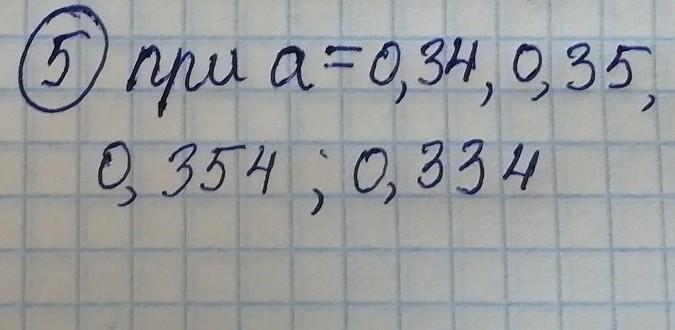 5 при a = 0,34, 0,35,
0,354 ; 0,334